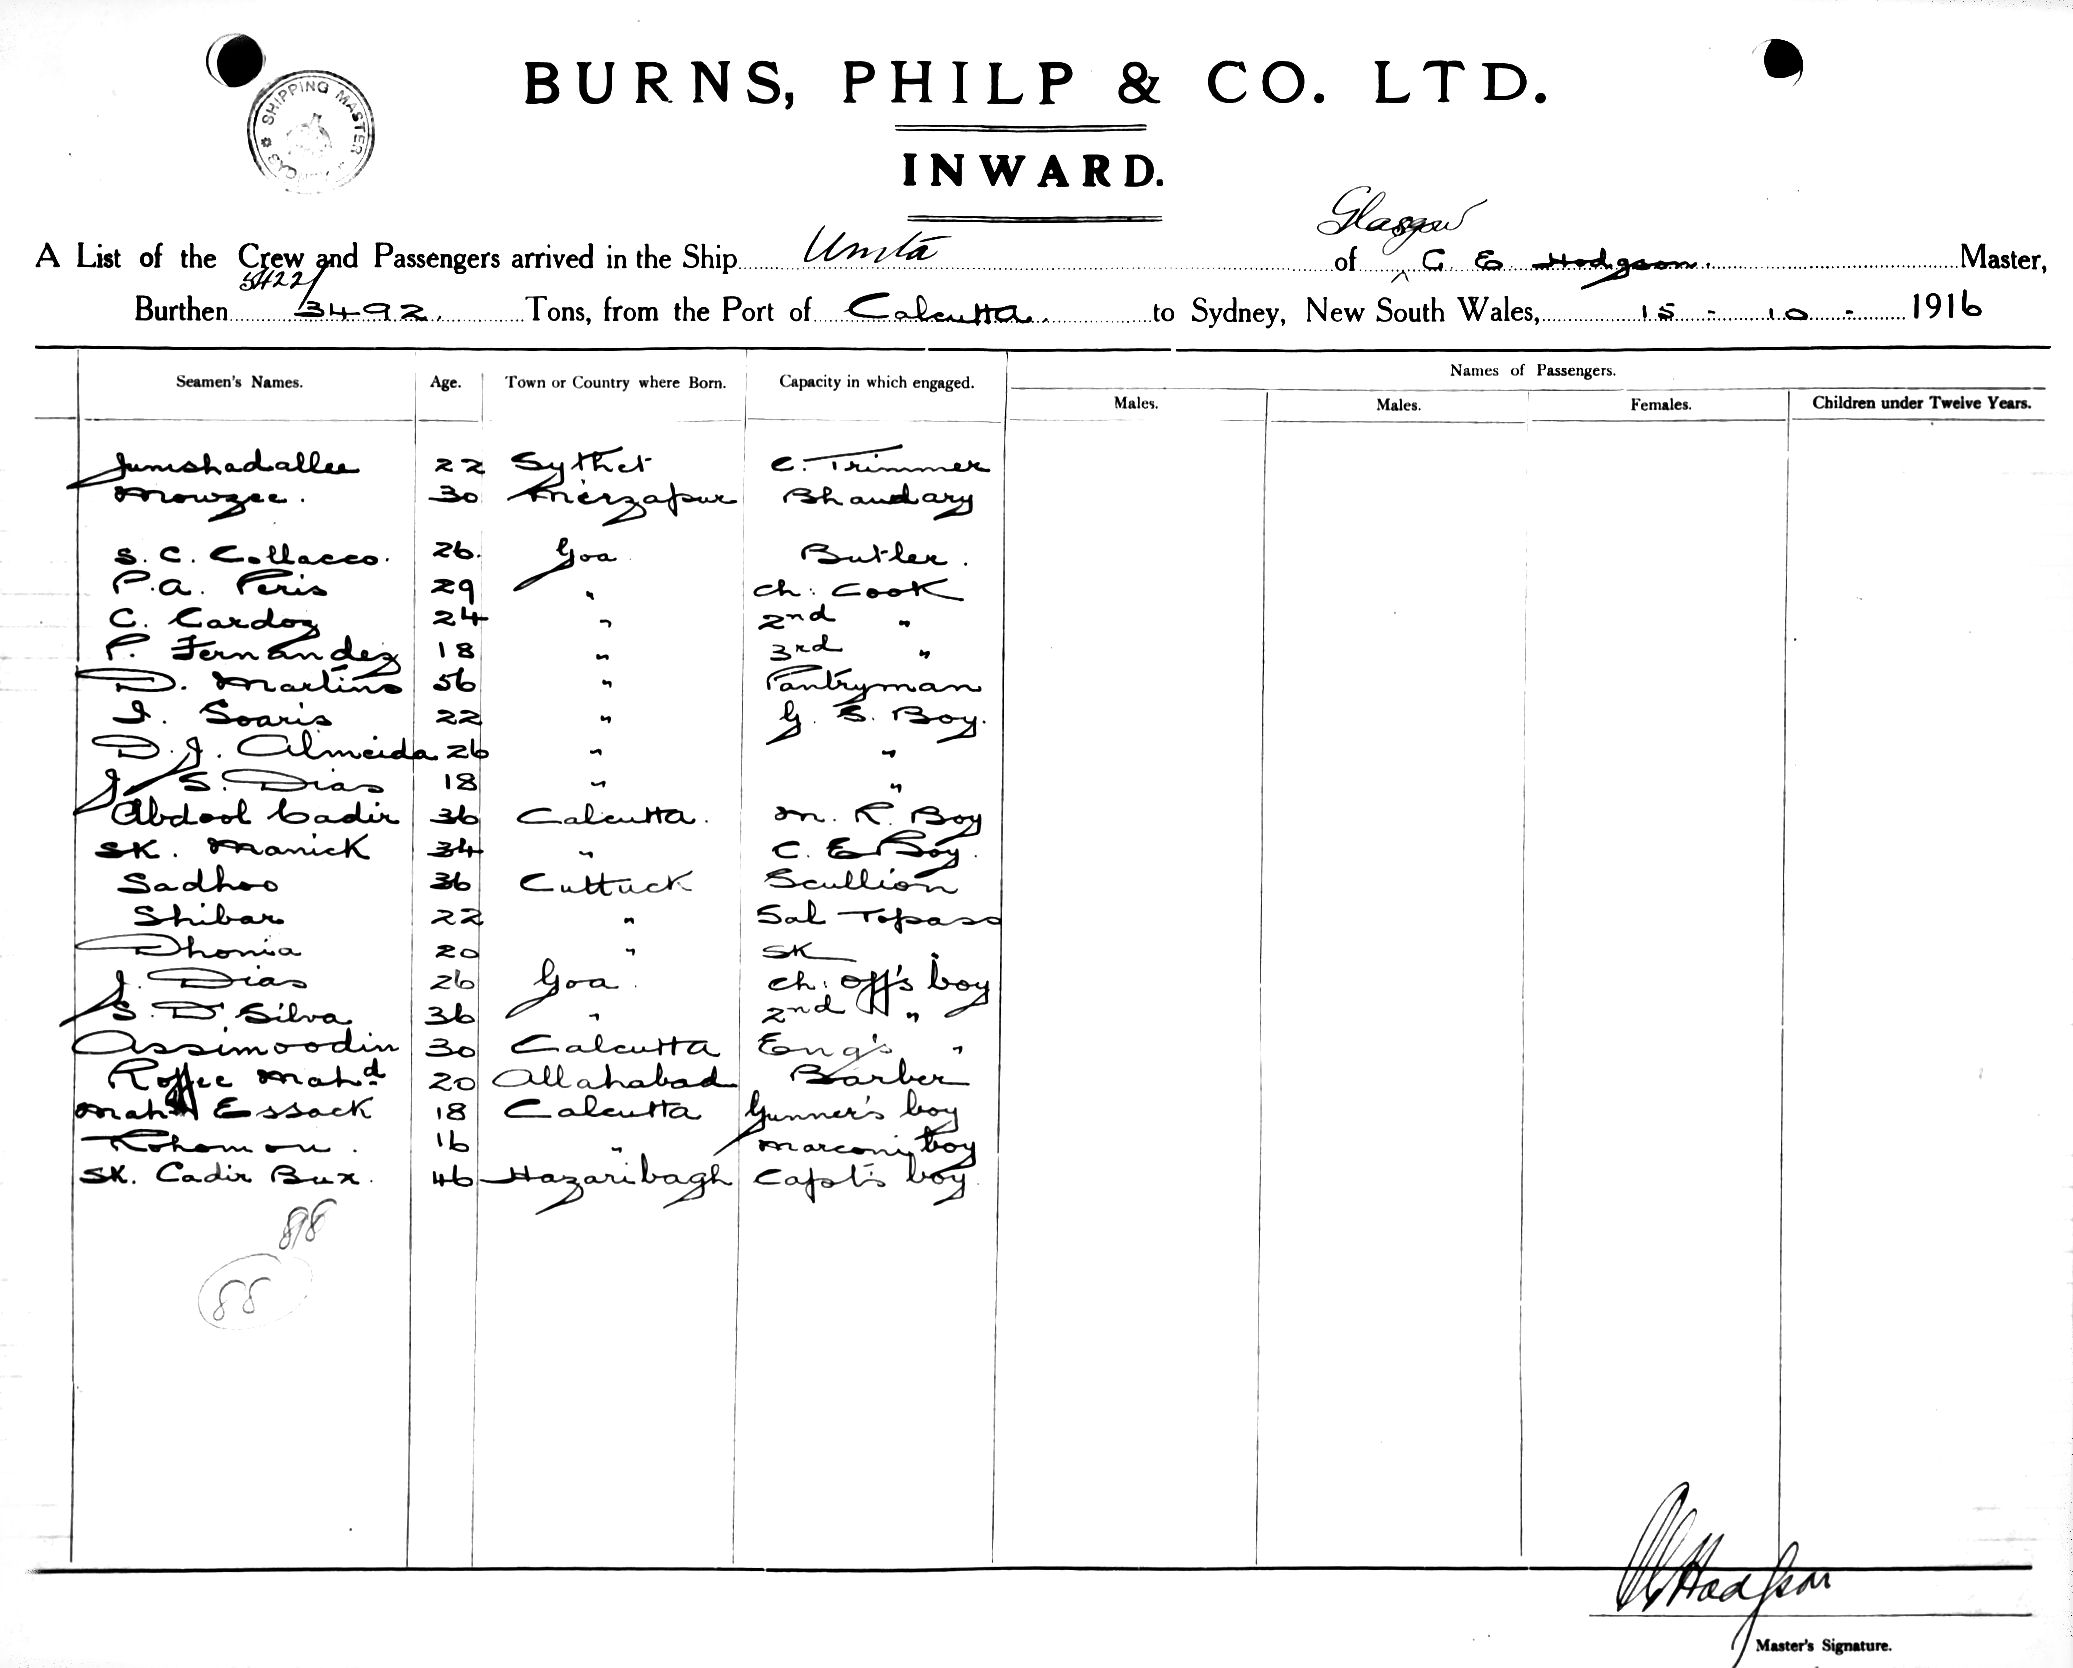 BURNS, PHILP & CO. LTD.
SHIPPING MASTER
INWARD.
Glasgow
A List of the Crew and Passengers arrived in the Ship Umta of ^ C. E. Hodgson. Master,
5422/
Burthen 3492. Tons, from the Port of Calcutta. to Sydney, New South Wales, 15 - 10 - 1916
Seamen's Names. Age. Town or Country where Born. Capacity in which engaged. Names of Passengers.
Males. Males. Females. Children under Twelve Years.
Jumshadallee 22 Sylhet C. Trimmer
Mowzee. 30 Mierzapur Bhaudary
S. C. Collacco. 26. Goa Butler.
P. A. Peris 29 " Ch. Cook
C. Cardoz 24 " 2nd "
P. Fernandez 18 " 3rd "
D. Martins 56 " Pantryman
I. Soaris 22 " G. S. Boy.
D. J. Almeida 26 " "
J. S. Dias 18 " "
Abdool Cadir 36 Calcutta. M. R. Boy
SK. Manick 34 " C. E Boy.
Sadhoo 36 Cuttuck Scullion
Shibar 22 " Sal Topass
Dhonia 20 " SK "
J. Dias 26 Goa. Ch. Off's boy
S. D'Silva 36 " 2nd "
Assimoodin 30 Calcutta Eng's "
Roffee Mahd 20 Allahabad Barber
Mah Essack 18 Calcutta Gunner's boy
Rohomon. 16 " Marconi boy
SK. Cadir Bux. 46 Hazaribagh Capt's boy.
88
88
C E Hodgson
Master's Signature.